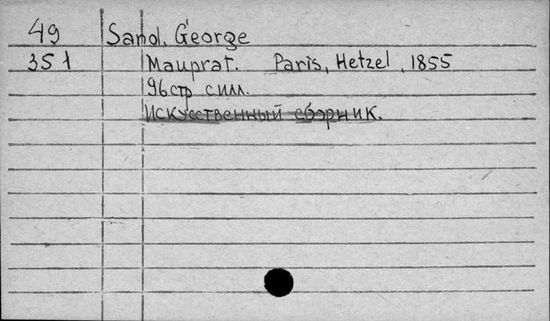 49 Sand, George
35 1 Mauprat. Paris, Hetzel, 1855
96 стр с илл.
Искусственный сборник.